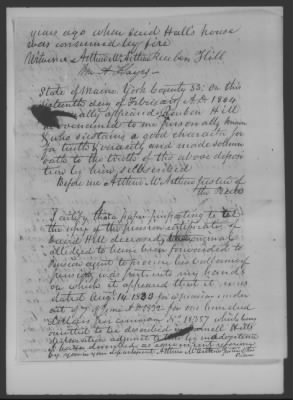 years ago when said Hall's house
was consumed by fire
Witness Arthur McArthur Reuben Hill
Wm A Hayes
State of Maine York County SS: On this
day of February A.D. 1854
personally appeared Reuben Hill
to me personally known
& who sustains a good character for
for truth & veracity and made solemn
oath to the truth of the above deposi
tion by him subscribed
Before me Arthur McArthur justice of
the Peace
I certify that a paper purporting to be
the copy of the pension certificate of
David Hill deceased the original
alledged to have been forwarded to
Pension agent to procure his balance of
pension, was put into my hands
on which it appeared that it was
dated Augt. 14. 1833 for a pension under
act of 7 of June A.D. 1832 for one hundred
dollars per annum No. 15757 which being
omitted to be described in Hill's
declaration
Arthur McArthur Justice of the
Peace